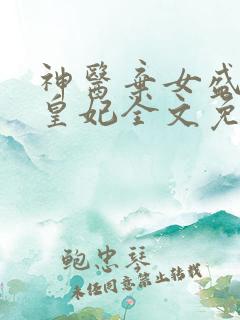 神醫棄女盛
皇妃全文免
鲍忠琴
未经同意禁止转载